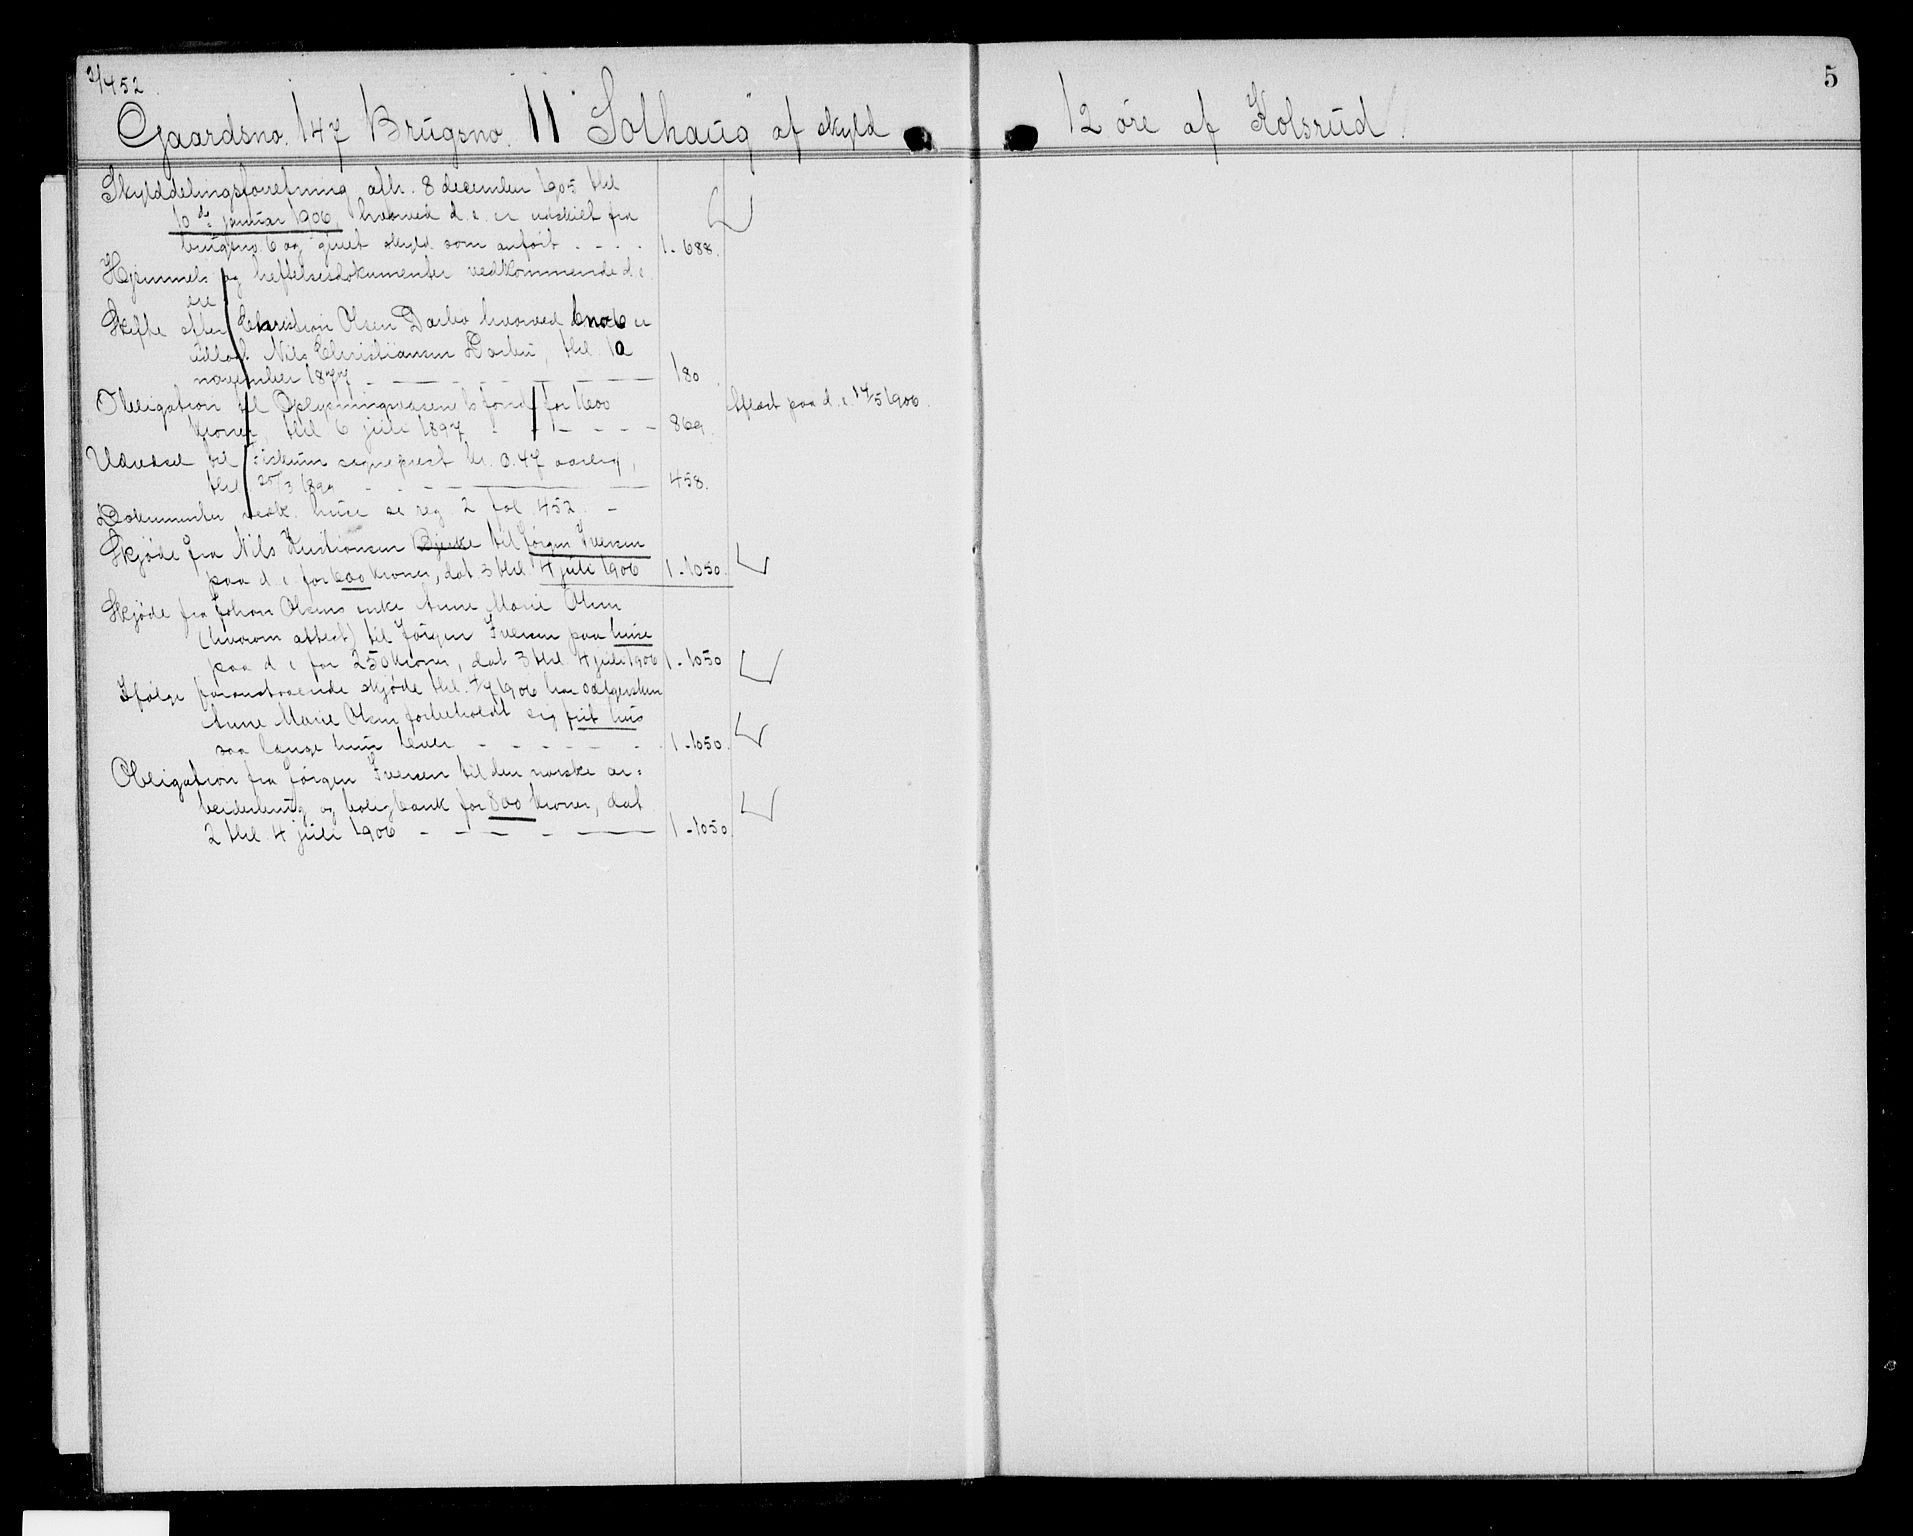 2/452.
5
Gaardsno. 147 Brugsno. 11 "Solhaug" af skyld 12 øre af Kolsrud.
Skylddelingsforretning, afh. 8 december 1905 thl
6te januar 1906, hvorved d. e. er udskilt fra
brugsno. 6 og givet skyld som anført - - - 1-688.
Hjemmels og heftelsesdokumenter vedkommende d. e.
ere
Skifte efter Christian Olsen Darbo hvorved bno 6 er
udlagt Nils Christiansen Darbo, thl. 10
november 1877 - - - 180.
Obligation til Oplysningsvæsenets fond for 1600
kroner, thl 6 juli 1897 - - - 869. Aflæst paa d. e. 14/5 1906.
Udredsel til Fiskum sogneprest kr. 0.47 aarlig,
thl 25/3 1899 - - - 458.
Dokumenter vedk. huse se reg. 2 fol. 452. -
Skjøde fra Nils Kristiansen Bjerke til Jørgen Iversen
paa d e for 600 kroner, dat 3 thl. 4 juli 1906 1-1050.
Skjøde fra Johan Olsens enke Anne Marie Olsen
(hvorom attest) til Jørgen Iversen paa huse
paa d e for 250 kroner, dat 3 thl 4 juli 1906 1-1050
Ifølge foranstaaende skjøde thl. 4/7 1906 har sælgersken
Anne Marie Olsen forbeholdt sig frit hus
saa længe hun lever - - - 1-1050.
Obligation fra Jørgen Iversen til den norske ar=
beiderbrug og boligbank for 800 kroner, dat
2 thl. 4 juli 1906 - - - 1-1050.